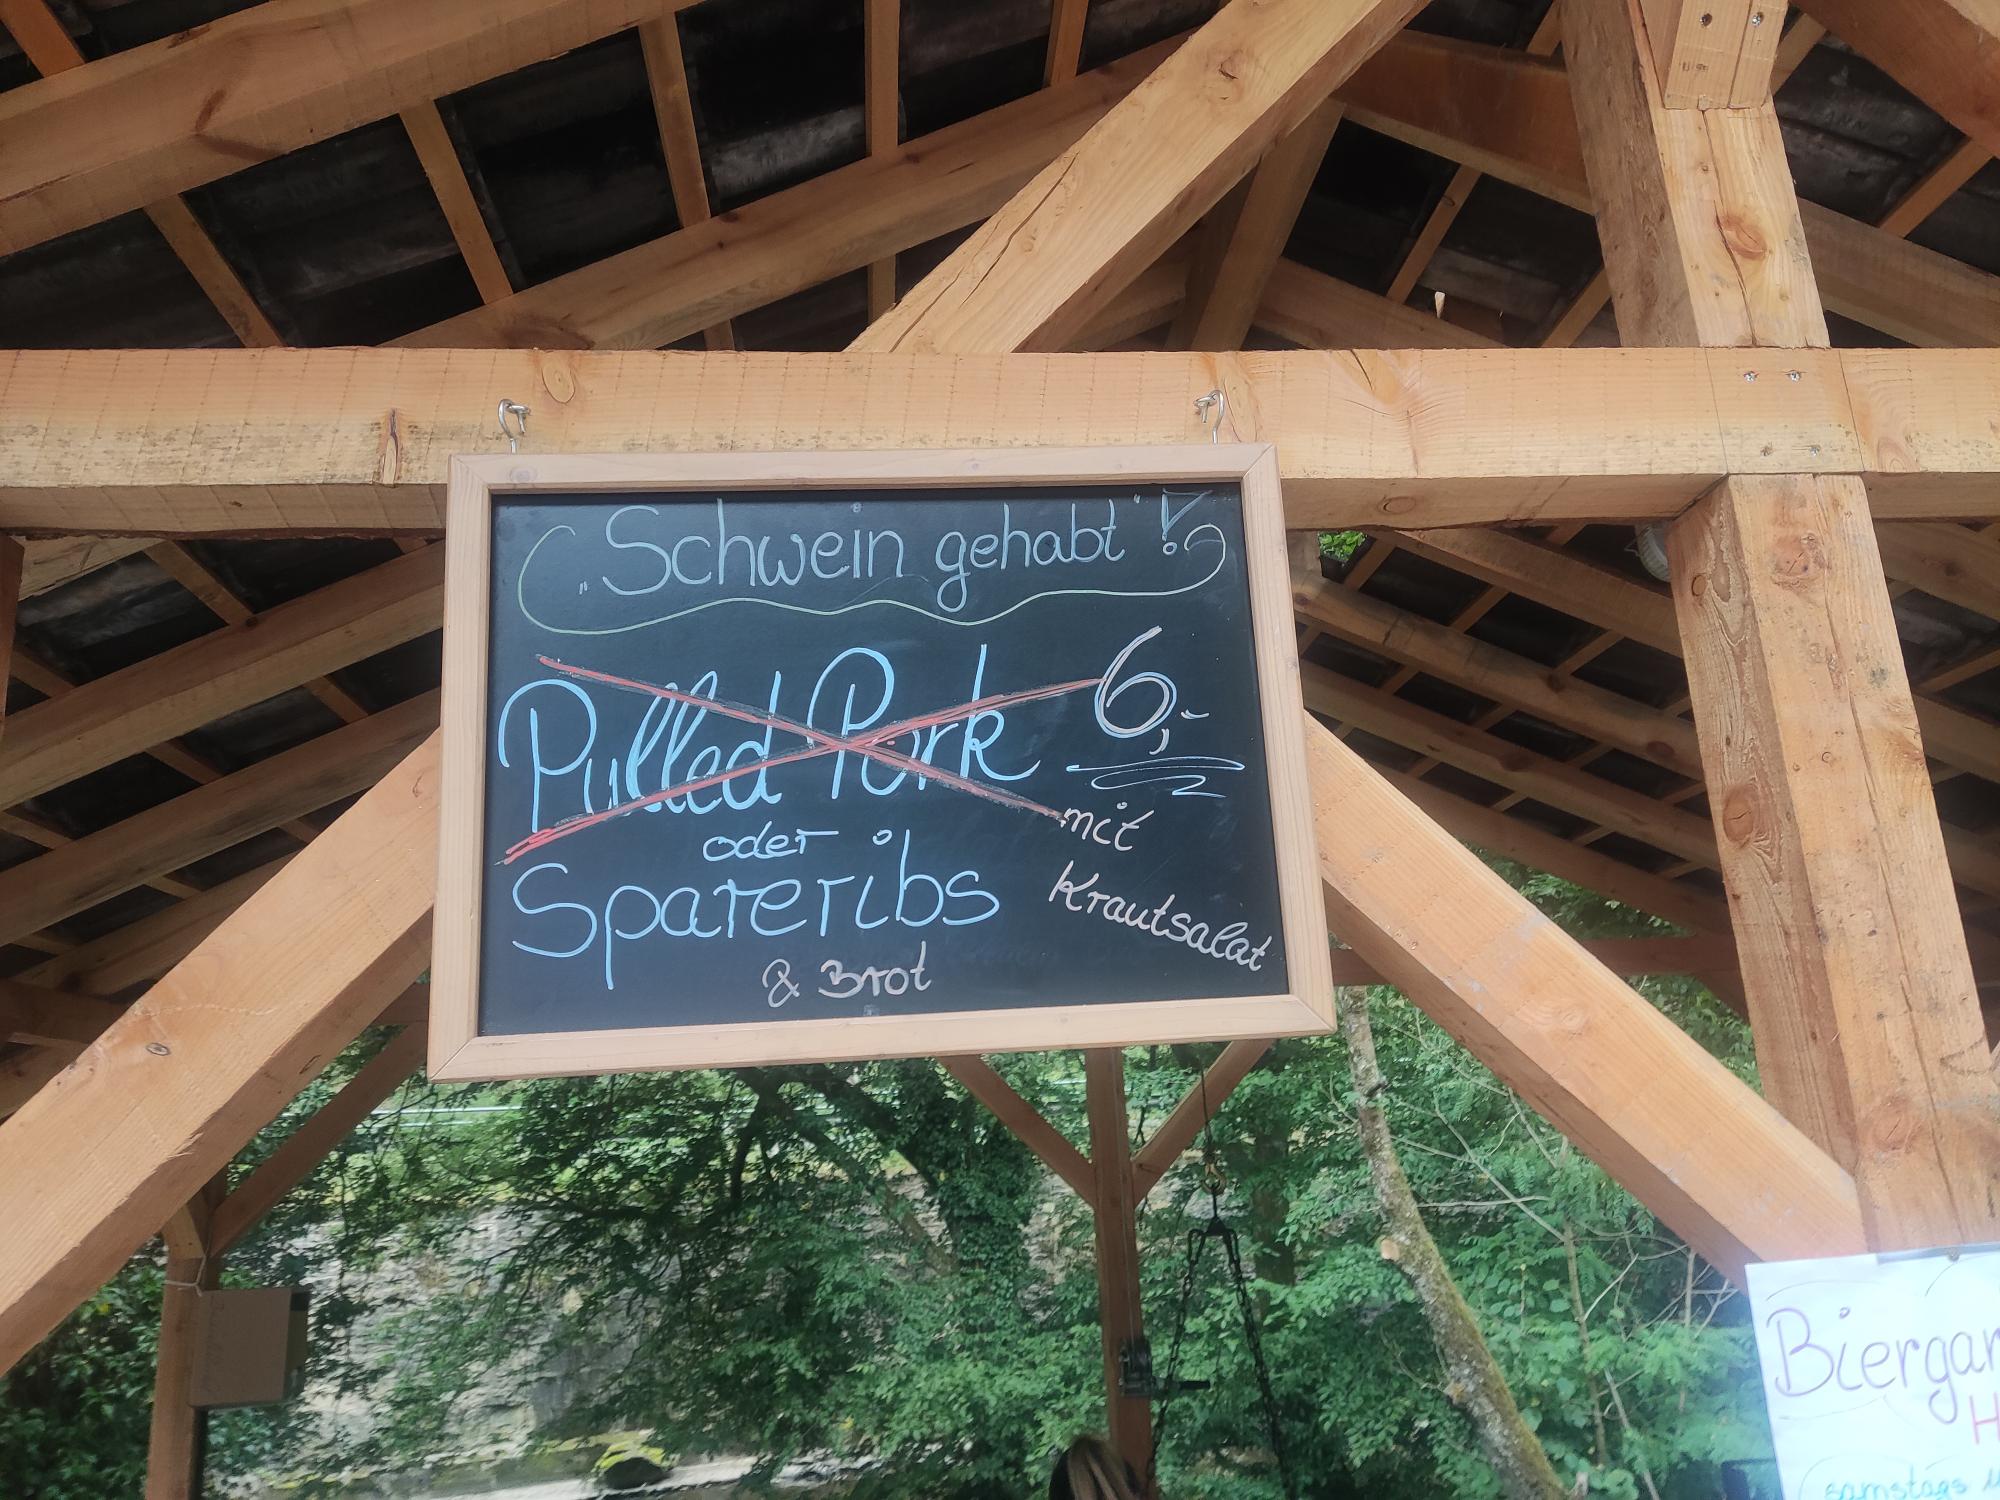 „Schwein gehabt"!
Pulled Pork 6,-
oder
Spareribs
mit
Krautsalat
& Brot
Biergar
H
samstags